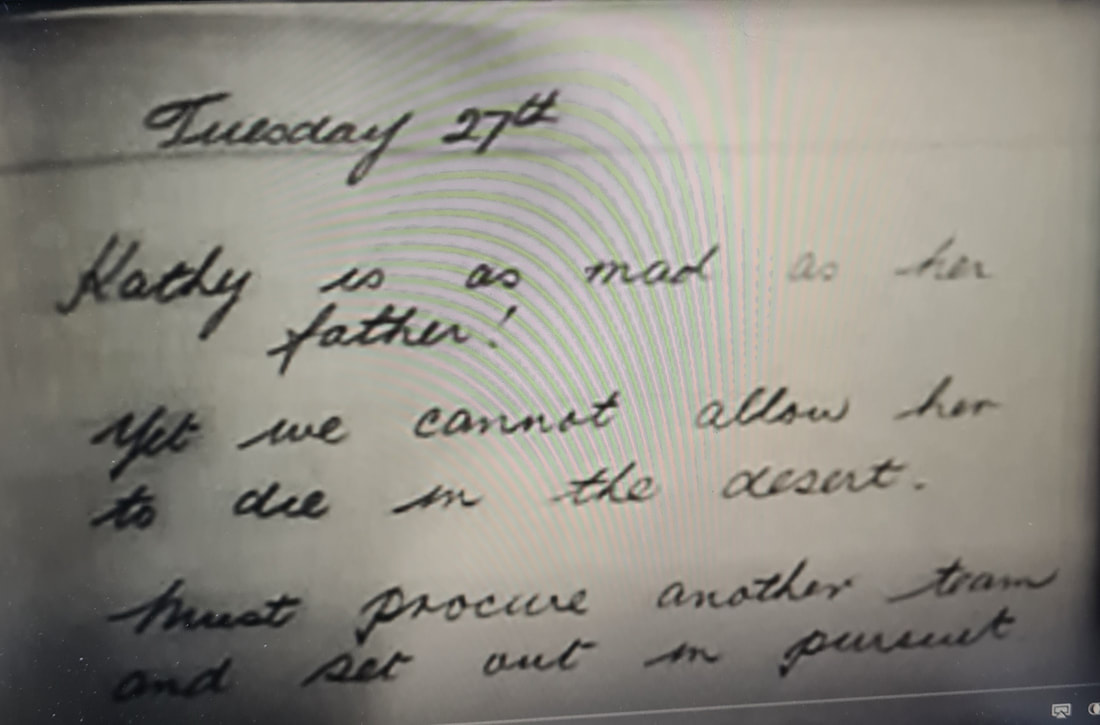 Tuesday 27th
Kathy is as mad as her
father!
Yet we cannot allow her
to die in the desert.
Must procure another team
and set out in pursuit